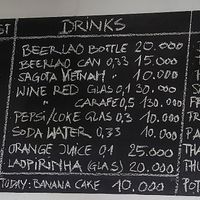 ST
DRINKS
BEERLAO BOTTLE 20.000
BEERLAO CAN 0,33 15.000
SAGOTA VIETNAM " 10.000
WINE RED GLAS 0,1 30.000
" CARAFE 0,5 130.000
PEPSI/COKE GLAS 0,3 10.000
SODA WATER 0,33 10.000
ORANGE JUICE 0.1 25.000
LAOPIRINHA (GLAS) 20.000
TODAY: BANANA CAKE 10.000